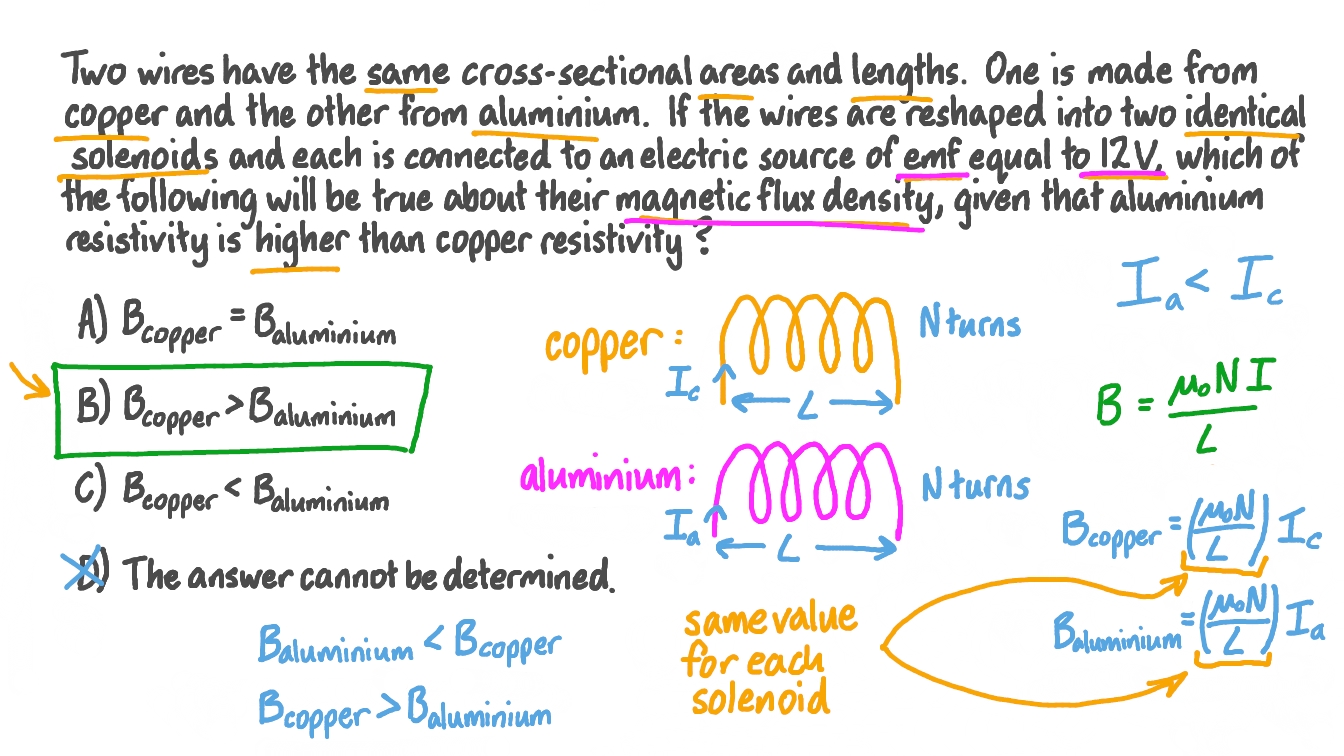 Two wires have the same cross-sectional areas and lengths. One is made from
copper and the other from aluminium. If the wires are reshaped into two identical
solenoids and each is connected to an electric source of emf equal to 12V, which of
the following will be true about their magnetic flux density, given that aluminium
resistivity is higher than copper resistivity?
A) Bcopper = Baluminium
B) Bcopper > Baluminium
C) Bcopper < Baluminium
D) The answer cannot be determined.
Baluminium < Bcopper
Bcopper > Baluminium
copper:
N turns
Ic
L
aluminium:
N turns
Ia
L
same value
for each
solenoid
Ia < Ic
B = μ₀NI
L
Bcopper = (μ₀N/L) Ic
Baluminium = (μ₀N/L) Ia